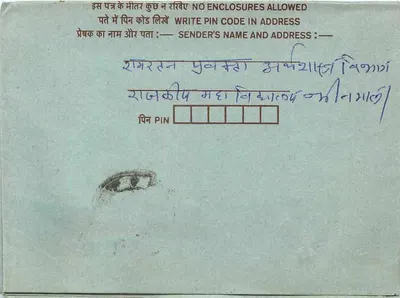 इस पत्र के भीतर कुछ न रखिए NO ENCLOSURES ALLOWED
पते में पिन कोड लिखें WRITE PIN CODE IN ADDRESS
प्रेषक का नाम और पता :— SENDER'S NAME AND ADDRESS :—
रामरतन प्रवक्ता अर्थशास्त्र विभाग
राजकीय महा विद्यालय
पिन PIN